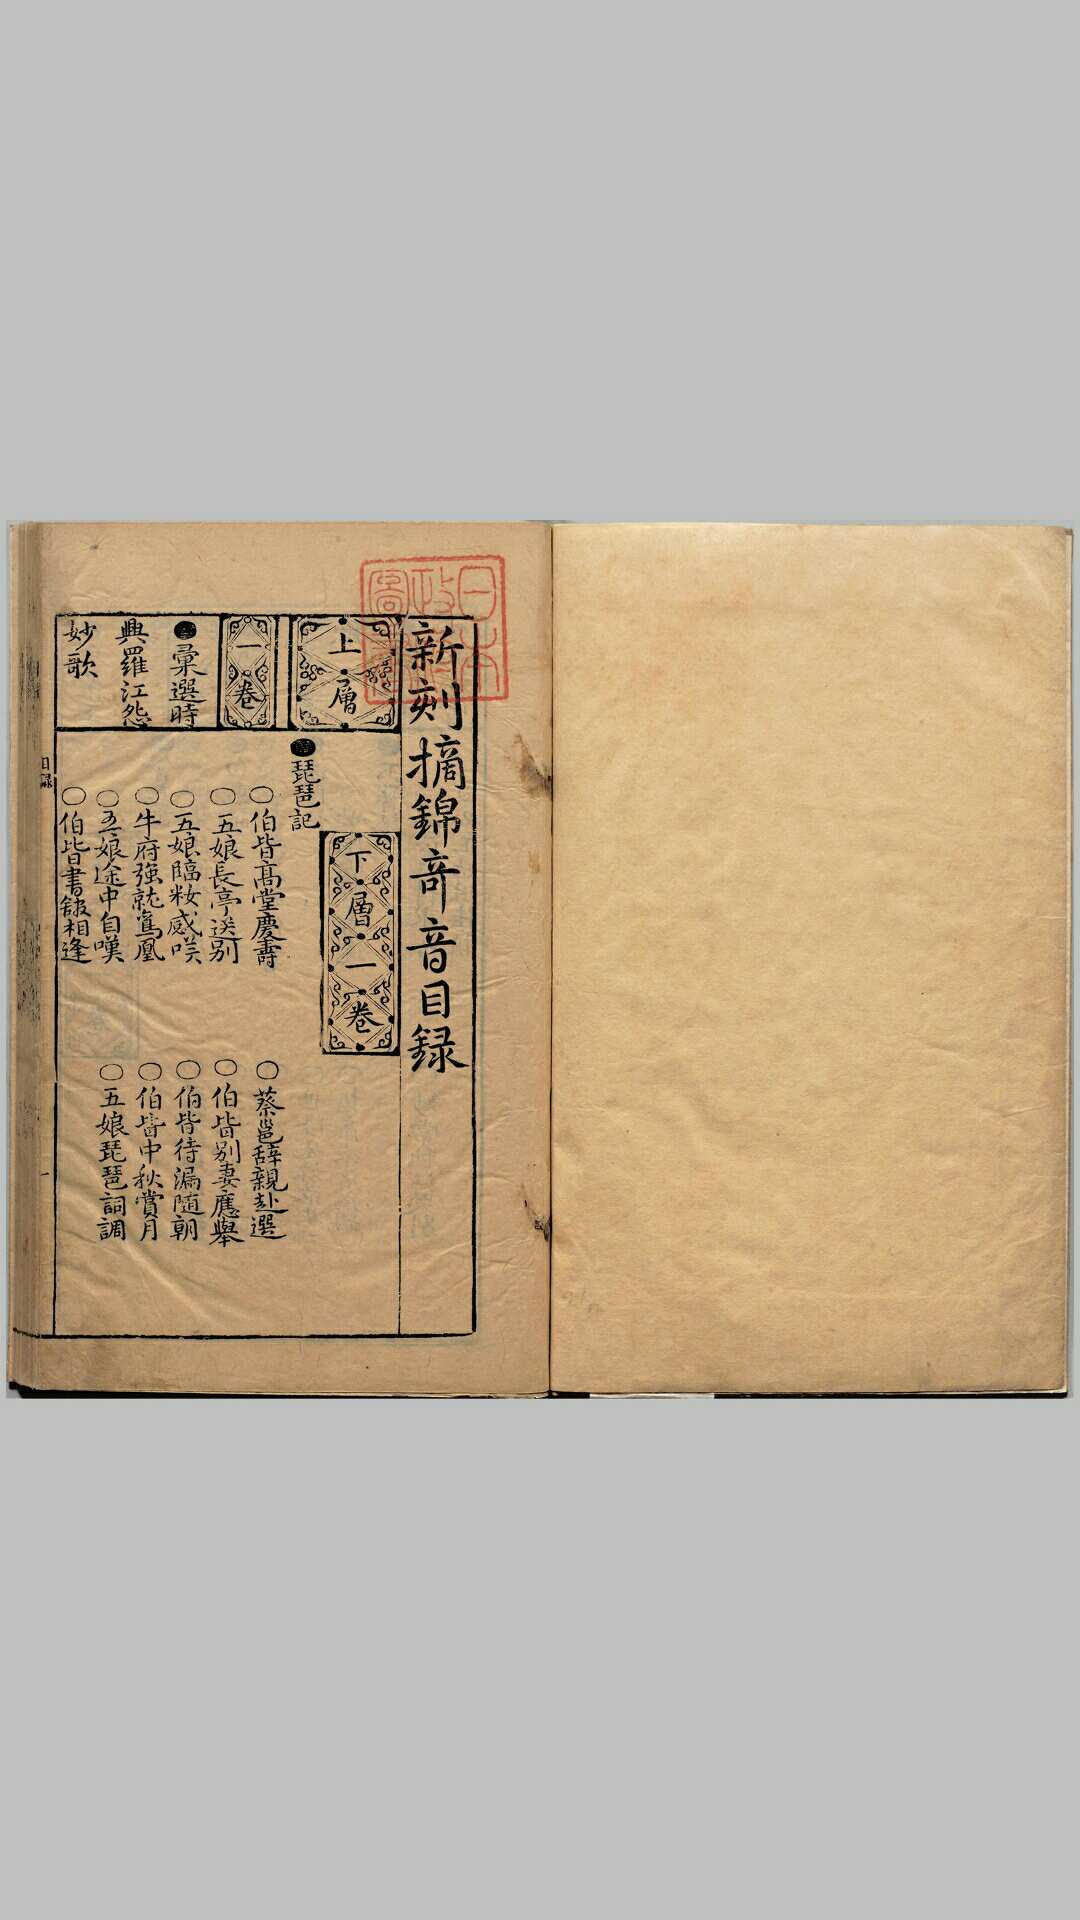 新刻摘錦奇音目録
上層
一卷
彙選時
興羅江怨
妙歌
下層一卷
琵琶記
○伯皆高堂慶壽
○蔡邕辭親赴選
○五娘長亭送別
○伯皆別妻應舉
○五娘臨粧感嘆
○伯皆待漏隨朝
○牛府強就鸞凰
○伯皆中秋賞月
○五娘途中自嘆
○五娘琵琶詞調
○伯皆書館相逢
目録
一
日本
政
圖